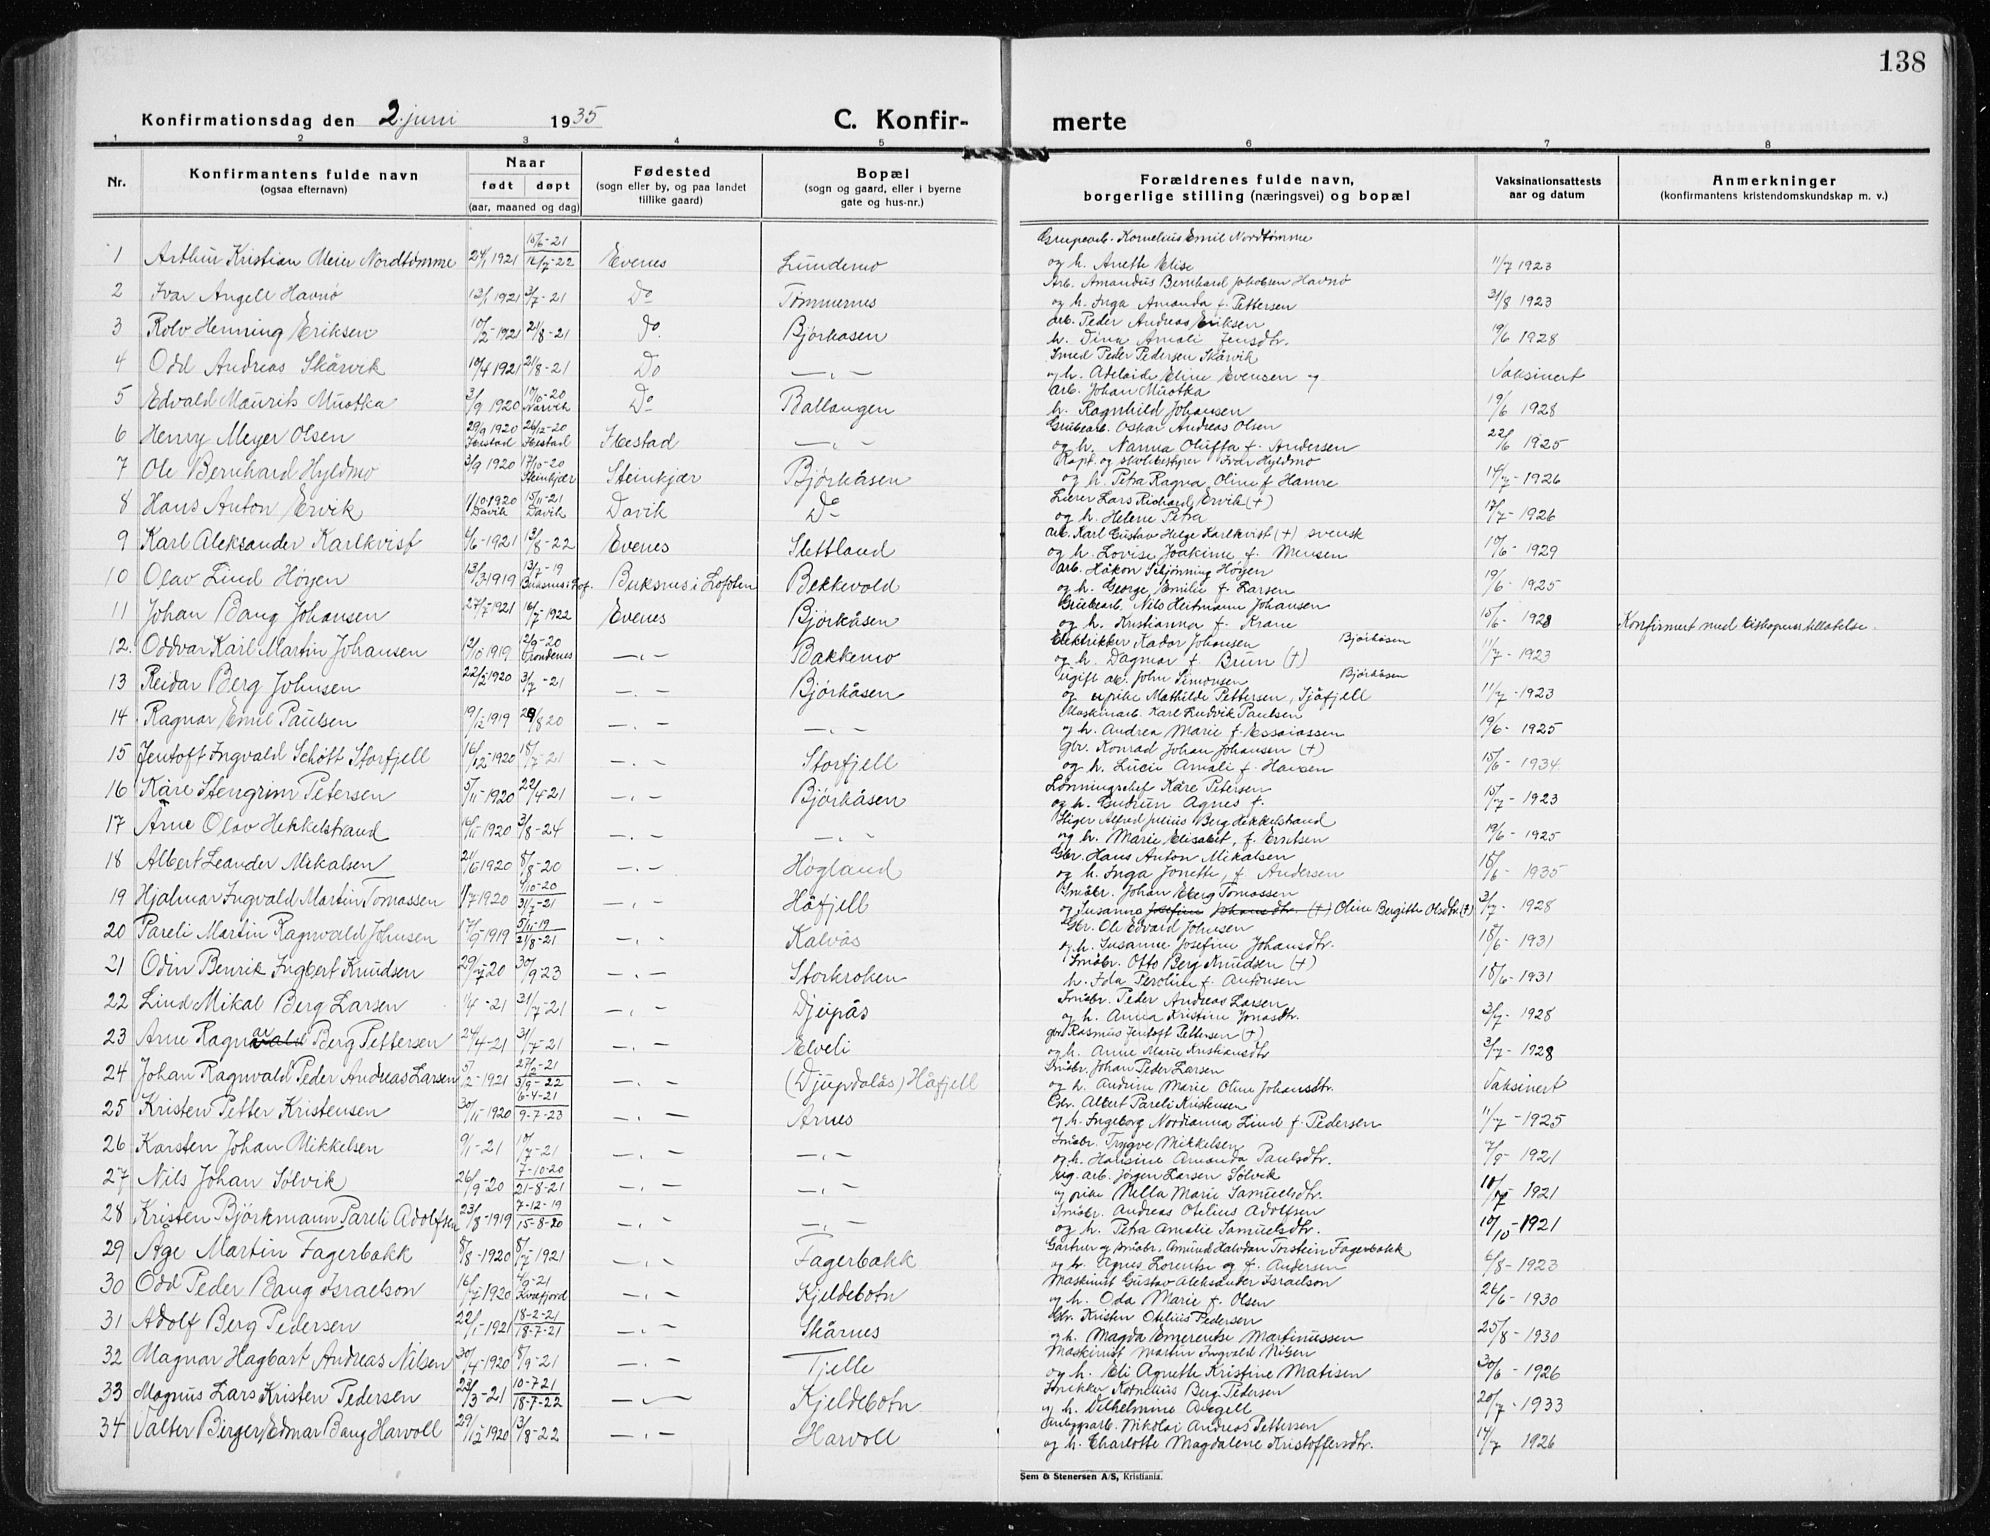 138
Konfirmationsdag den 2. juni 1935 C. Konfir- merte
1 2 3 4 5 6 7 8
Nr. Konfirmantens fulde navn (ogsaa efternavn) Naar født døpt (aar, maaned og dag) Fødested (sogn eller by, og paa landet tillike gaard) Bopæl (sogn og gaard, eller i byerne gate og hus-nr.) Forældrenes fulde navn, borgerlige stilling (næringsvei) og bopæl Vaksinationsattests aar og datum Anmerkninger (konfirmantens kristendomskundskap m. v.)
1 Arthur Kristian Meier Nordtømme 24/1 1921 10/6-21 16/7-22 Evenes Lundemo Grupearb. Kornelius Emil Nordtømme
og h. Anette Elise 11/7 1923
2 Ivar Angell Havnø 13/1 1921 3/7-21 Do Tømmernes Arb. Amandus Bernhard Jakobsen Havnø
og h. Inga Amanda f. Pettersen 31/8 1923
3 Rolv Henning Eriksen 10/2-1921 21/8-21 Do. Bjørkåsen arb. Peder Andreas Eriksen
h. Dina Amali Jensdtr. 19/6 1928
4 Odd Andreas Skårvik 10/4 1921 21/8-21 Do —„— Smed Peder Pedersen Skårvik
og h. Adelaide Eline Evensen Vaksinert
5 Edvald Maurits Muotka 3/9 1920 17/10-20 Narvik Do Ballangen arb. Johan Muotka
h. Ragnhild Johansen 19/6 1928
6 Henry Meyer Olsen 29/9 1920 26/12-20 Ibestad Ibestad Ibestad —„— Grubearb. Oskar Andreas Olsen
og h. Nanna Oluffa f. Andersen 22/6 1925
7 Ole Bernhard Hyldmo 3/9 1920 17/10-20 Steinkjær Steinkjær Bjørkåsen Kapt. og skolebestyrer Ivar Hyldmo
og h. Petra Ragna Oline f. Hamre 14/7-1926
8 Hans Anton Ervik 1/10-1920 Davik 15/11-21 Davik Davik Do Lærer Lars Richard Ervik (+)
og h. Helene Petra 17/7-1926
9 Karl Aleksander Karlkvist 4/6-1921 13/8-22 Evenes Slettland arb. Karl Gustav Helge Karlkvist (+) svensk
og h. Lovise Joakime f. Mensen 10/6-1929
10 Olav Lind Høyen 13/3-1919 13/7-19 Buksnes i Lof. Buksnes i Lofoten Bekkevold arb. Håkon Schjønning Høyen
og h. George Emilie f. Larsen 19/6-1925
11 Johan Bang Johansen 27/7 1921 16/7-1922 Evenes Bjørkåsen Grubearb. Nils Heitmann Johansen
og h. Kristianna f. Krane 15/6-1928 Konfirmert med biskopens tillatelse.
12. Oddvar Karl Martin Johansen 12/10 1919 12/9-20 Trondenes —„— Bakkemo Elektrikker Kador Johansen Bjørkåsen
og h. Dagmar f. Brun (+) 11/7-1923
13 Reidar Berg Johnsen 22/2 1920 3/7-21 —„— Bjørkåsen Ugift arb. John Simonsen Bjørkåsen
og pike Mathilde Pettersen, Sjåfjell 11/7-1923
14 Ragnar Emil Paulsen 19/12 1919 29/8 20 —„— —„— Maskinarb. Karl Ludvik Paulsen
og h. Andrea Marie f. Essaiassen 19/6-1925
15 Jentoft Ingvald Schøtt Storfjell 16/12-1920 18/7-21 —„— Storfjell Gbr. Konrad Johan Johansen (+)
og h. Lucie Amali f. Hansen 15/6-1934
16 Kåre Stengrim Petersen 5/11-1920 22/4-21 —„— Bjørkåsen Lønningschef Kåre Petersen
og h. Gudrun Agnes f. 15/7-1923
17 Arne Olav Hekkelstrand 14/11-1920 3/8-24 —„— —„— Stiger Alfred Julius Berg Hekkelstrand
og h. Marie Elisabet, f. Erntsen 19/6-1925
18 Albert Leander Mikalsen 21/6 1920 8/8-20 —„— Høgland Gbr. Hans Anton Mikalsen
og h. Inga Jonette, f. Andersen 18/6-1935
19 Hjalmar Ingvald Martin Tomassen 1/7 1920 4/10-20 31/7-21 —„— Håfjell Småbr. Johan Eberg Tomassen
og Susanna Josefine Johansdtr. (+) Oline Bergitte Olsdtr (+) 3/7-1928
20 Pareli Martin Ragnvald Johnsen 17/9 1919 5/11-19 21/8-21 —„— Kalvås Gbr. Ole Edvard Johnsen
og h. Susanne Josefine Johansdtr. 18/6-1931
21 Odin Benrik Ingbert Knudsen 29/7 20 30/9 23 —„— Storkroken Småbr. Otto Berg Knudsen (+)
h. Ida Peroline f. Antonsen 18/6-1931
22 Lind Mikal Berg Larsen 1/4-21 31/7-21 —„— Djupås Småbr. Peder Andreas Larsen
og h. Anna Kristine Jonasdtr. 3/7-1928
23 Arne Ragnvald ar Berg Pettersen 24/4-21 31/7-21 —„— Elveli gbr. Rasmus Jentoft Pettersen (+)
og h. Anne Marie Kristiansdtr 3/7-1928
24 Johan Ragnvald Peder Andreas Larsen 5/2-1921 27/2-21 3/9-22 —„— (Djupdalås) Håfjell Småbr. Johan Peder Larsen
og h. Andrine Marie Oline Johansdtr. Vaksinert
25 Kristen Petter Kristensen 30/11-1920 6-4-21 9-7-23 —„— Arnes Gbr. Albert Pareli Kristensen
og h. Ingeborg Nordianna Lind f. Pedersen 11/7-1925
26 Karsten Johan Mikkelsen 9/1-21 17/7-21 —„— —„— Småbr. Trygve Mikkelsen
og h. Hansine Amanda Paulsdtr. 7/9-1921
27 Nils Johan Sølvik 26/9-20 7-10-20 21-8-21 —„— —„— ug. arb. Jørgen Larsen Sølvik
og pike Nella Marie Samuelsdtr. 10/10-1921
28 Kristen Björkmann Pareli Adolfsen 23/8-1919 7-12-19 15-8-20 —„— —„— Småbr. Andreas Otelius Adolfsen
og h. Petra Amalie Samuelsdtr. 10/10-1921
29 Åge Martin Fagerbakk 8/8-1920 8/7-1921 —„— Fagerbakk Gartner og småbr. Amund Halvdan Torstein Fagerbakk
og h. Agnes Lorentse f. Andersen 6/8-1923
30 Odd Peder Bang Israelson 16/7 1920 4/9-21 Kvæfjord —„— Kjeldebotn Maskinist Gustav Aleksander Israelson
og h. Oda Marie f. Olsen 26/6-1930
31 Adolf Berg Pedersen 22/1-1921 18-2-21 18-7-21 —„— Skårnes Gbr. Kristen Otelius Pedersen
og h. Magda Emerentse Martinussen 25/8-1930
32 Magnar Hagbart Andreas Nilsen 30/4-1920 18/9-21 —„— Tjelle Maskinist Martin Ingvald Nilsen
og h. Eli Agnette Kristine Matisen 30/6-1926
33 Magnus Lars Kristen Pedersen 23/3-21 10-7-21 18-7-22 —„— Kjeldebotn Snikker Kornelius Berg Pedersen
og h. Vilhelmine Angell 20/7-1933
34 Valter Birger Edmar Bang Harvoll 29/12 1920 13/8-22 —„— Harvoll Anleggsarb. Nikolai Andreas Pettersen
og h. Charlotte Magdalene Kristoffersdtr. 14/7 1926
Sem & Stenersen A/S, Kristiania.